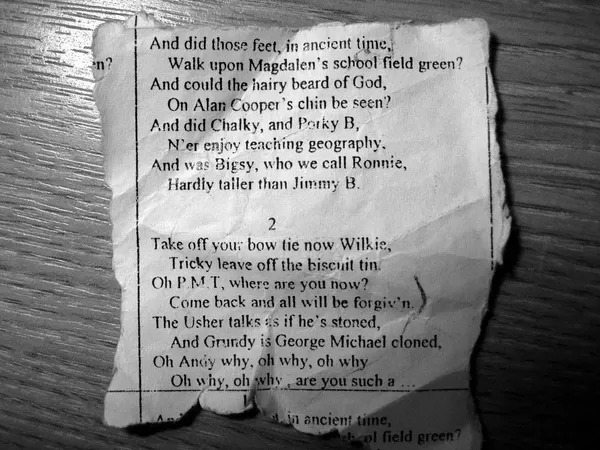 And did those feet, in ancient time,
n?
Walk upon Magdalen's school field green?
And could the hairy beard of God,
On Alan Cooper's chin be seen?
And did Chalky, and Porky B,
N'er enjoy teaching geography.
And was Bigsy, who we call Ronnie,
Hardly taller than Jimmy B.
2
Take off your bow tie now Wilkie,
Tricky leave off the biscuit tin.
Oh P.M.T, where are you now?
Come back and all will be forgiv'n.
The Usher talks as if he's stoned,
And Grundy is George Michael cloned,
Oh Andy why, oh why, oh why
Oh why, oh why , are you such a ...
in ancient time,
field green?